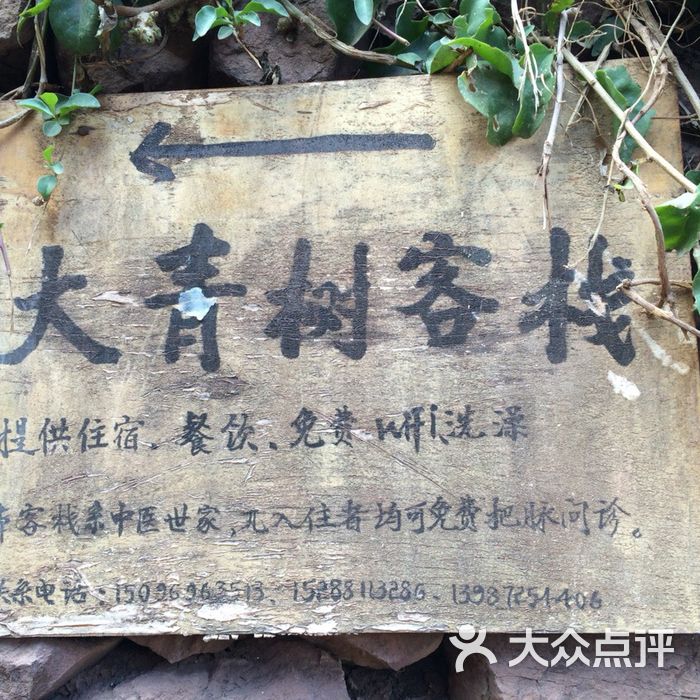 大青树客栈
提供住宿、餐饮、免费wifi、洗澡
客栈系中医世家,凡入住者均可免费把脉问诊。
联系电话:15096963513、15288113286、13987251406
大众点评